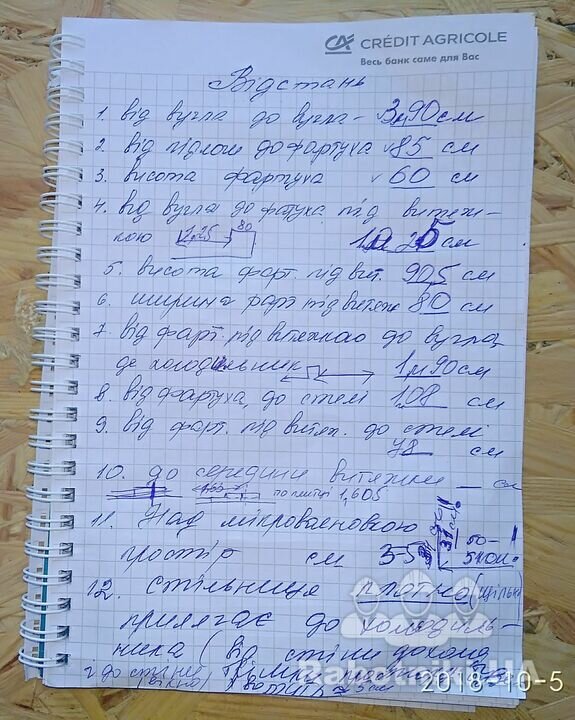 CRÉDIT AGRICOLE
Весь банк саме для Вас
Відстань
1. від вугла до вугла - 3м90см
2. від підлоги до фартуха 85 см
3. висота фартуха 60 см
4. від вугла до фартуха під витяж-
кою 1,25 80 1м25см
5. висота фарт. під вит. 90,5 см
6. ширина фарт під витяж 80 см
7. від фарт. під витяжкою до вугла,
де холодильник 1м90см
8. від фартуха до стелі 108 см
9. від фарт. під витяж. до стелі
78 см
10. до середини витяжки — см
1,65 по плитці 1,605
11. Над мікрохвильовкою
простір см 35
31 см
12. стільниця плотно (щільно)
прилягає до холодиль-
ника (Від стіни
Rabotniki.UA
2018-10-5